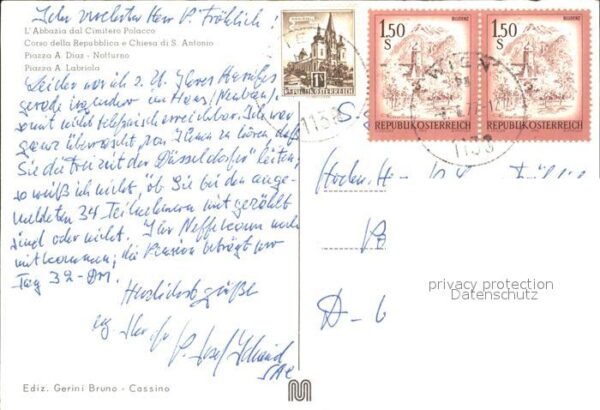 Sehr verehrter Herr P. Fröhlich!
L'Abbazia dal Cimitero Polacco
Corso della Repubblica e Chiesa di S. Antonio
Piazza A. Diaz - Notturno
Piazza A. Labriola
Leider war ich z. Zt. Ihres Anrufes
gerade irgendwo im Haus (Neubau),
somit nicht telefonisch erreichbar. Ich war
ganz überrascht, von Ihnen zu hören, daß
Sie die Freizeit der "Düsseldorfer" leiten;
so weiß ich nicht, ob Sie bei den ange-
meldeten 34 Teilnehmern mitgezählt
sind oder nicht. Ihr Neffe kann noch
mitkommen; die Pension beträgt pro
Tag 32.- DM.
Herzlichst grüßt
P. Josef
Ediz. Gerini Bruno - Cassino
1S
1.50
S
BLUDENZ
REPUBLIK ÖSTERREICH
1.50
S
BLUDENZ
REPUBLIK ÖSTERREICH
WIEN
1133
1133
privacy protection
Datenschutz